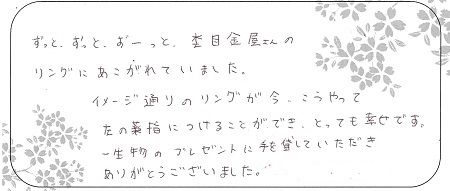 ずっと、ずっと、ずーっと、杢目金屋さんの
リングにあこがれていました。
イメージ通りのリングが今、こうやって
左の薬指につけることができ、とっても幸せです。
一生物のプレゼントに手を貸していただき
ありがとうございました。